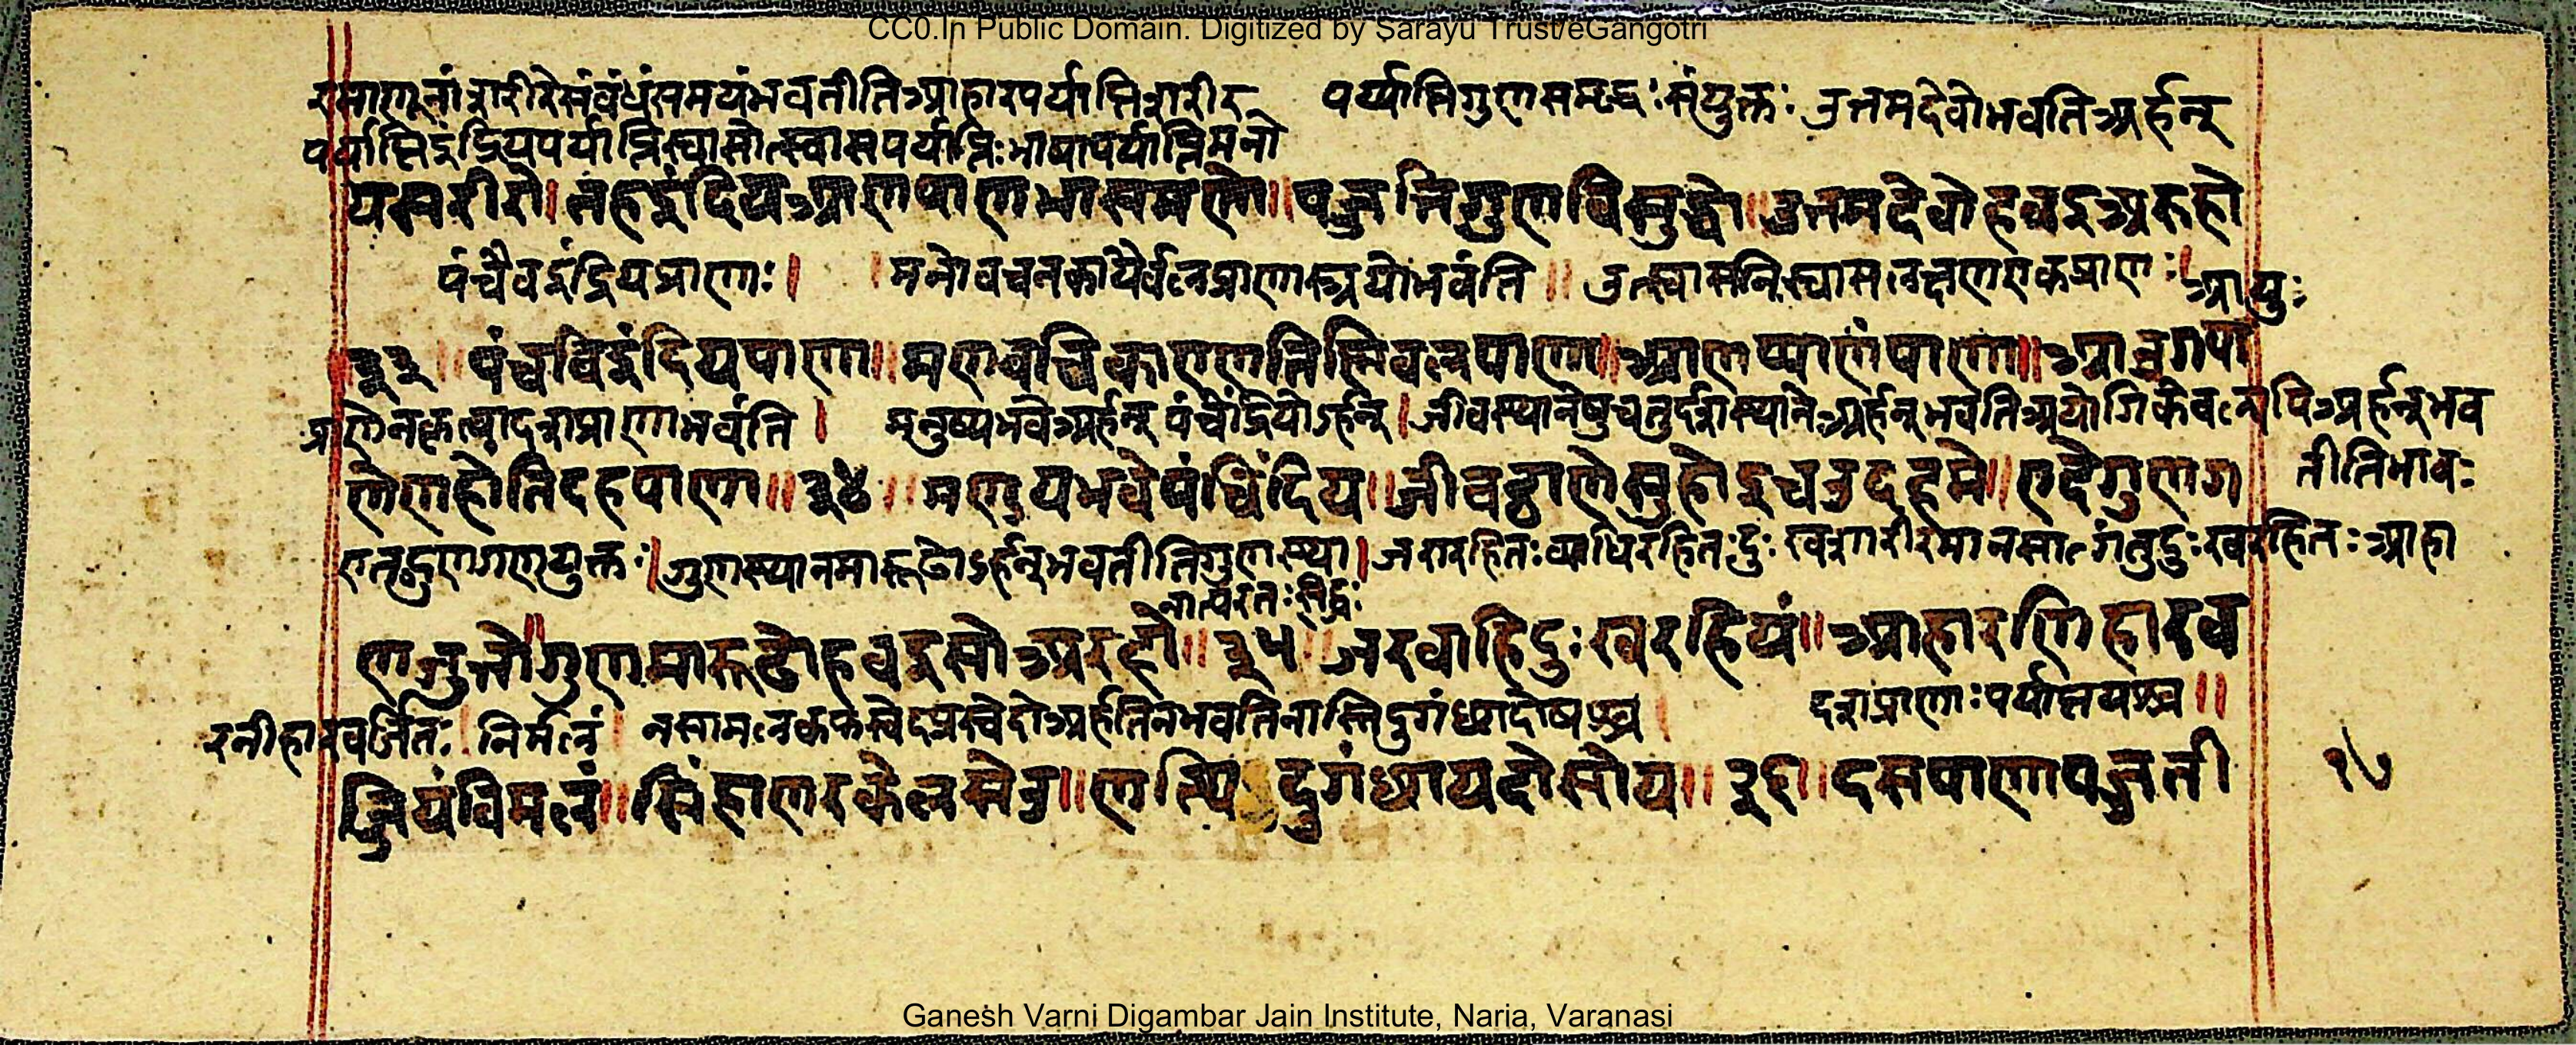 CC0.In Public Domain. Digitized by Sarayu Trust/eGangotri
रमाणूनां शरीरेसंबंधंसमयंभवतीतिआहारपर्याप्तिशरीर पर्य्याप्तिगुणसमृद्धः संयुक्तः उत्तमदेवोभवतिअर्हन्
पर्याप्तिइंद्रियपर्याप्तिस्वासोत्स्वासपर्याप्तिःभाषापर्याप्तिमनो
यसरीरो। तहइंदियआणपाणभासमणो॥ पज्जत्तिगुणविसुद्धो॥ उत्तमदेवोहवइअरुहो
पंचैवइंद्रियप्राणाः। । मनोवचनकायैर्वलप्राणास्त्रयोभवंति॥ उत्स्वासनिस्वासलक्षणएकप्राणः। आयुः
३३॥ पंचविइंदियपाणा॥ मणवचिकाएणतिन्निवलपाणा॥ आणप्पाणंपाणा॥ आउगपा
प्राणेनकृत्वादशप्राणाभवंति। मनुष्यभवेअर्हन् पंचेंद्रियोऽर्हन्। जीवस्थानेषुचतुर्दशस्थानेअर्हन्भवतिअयोगिकेवल्यपिअर्हन्भव
णेणहोंतिदहपाणा॥ ३४॥ मणुयभवेपंचिंदिय॥ जीवठ्ठाणेसुहोइचउदहमे॥ एदेगुणग तीतिभावः
एतद्गुणगणयुक्तः। गुणस्थानमारूढोऽर्हन्भवतीतिगुणस्था। जरारहितःव्याधिरहितःदुःखशारीरमानसागंतुदुःखरहितः आहा
नात्परतःसिद्धः
णजुत्तो॥ गुणमारूढोहवइसोअरहो॥ ३५॥ जरवाहिदुःखरहियं॥ आहारणिहारव
रनीहारवर्जितः। निर्मलं। नसामलकफस्वेदप्रस्वेदोअर्हतिनभवतिनास्तिदुर्गंधादोषश्च। दशप्राणाःपर्याप्तयश्च॥
ज्जियंविमलं॥ सिंहाणरवेलसेउ॥ णत्थि दुगंधायदोसोय॥ ३६॥ दसपाणापज्जती
१७
Ganesh Varni Digambar Jain Institute, Naria, Varanasi